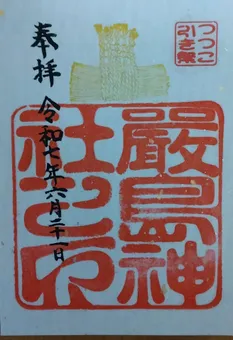 つつこ
引き祭
奉拝
令和七年六月二十一日
嚴島神
社之印